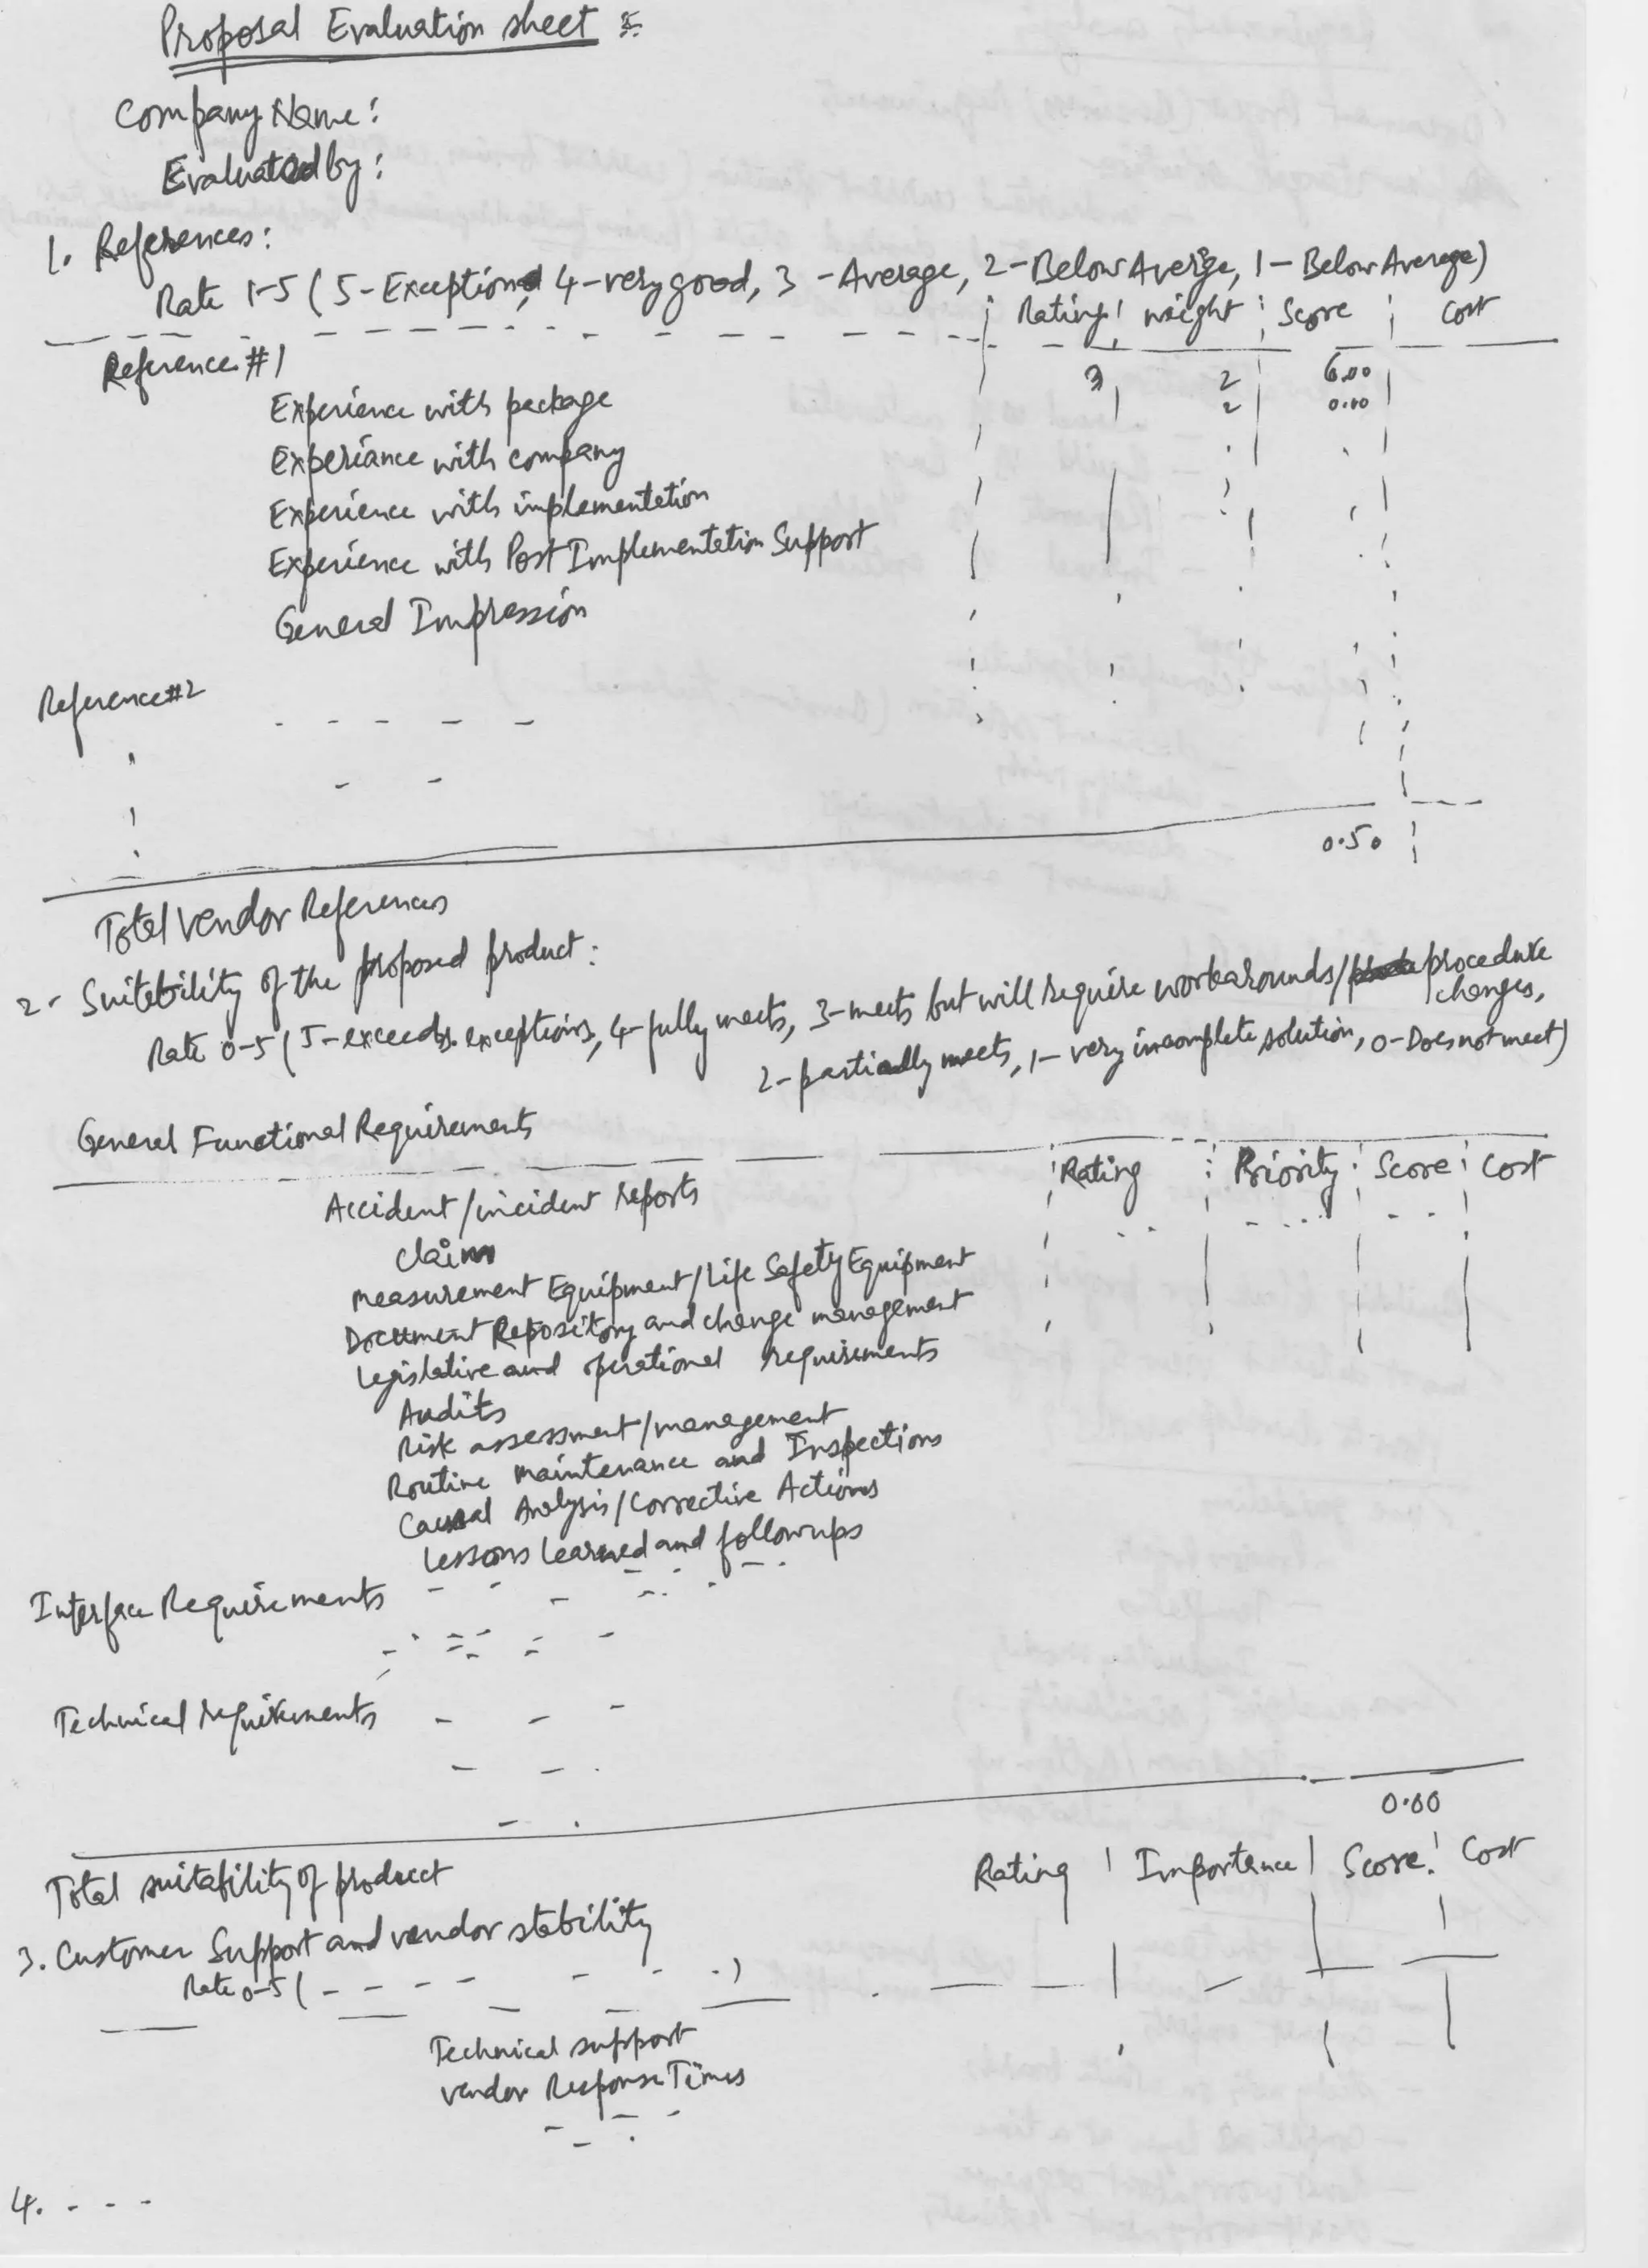 Proposal Evaluation sheet :
Company Name :
Evaluated by :
1. References :
Rate 1-5 ( 5-Exceptional, 4-very good, 3 -Average, 2-Below Averge, 1- Below Average)
Rating weight Score Cost
Reference #1
3 2 6.00
2 0.00
Experience with package
Experiance with company
Experience with implementation
Experience with Post Implementation Support
General Impression
Reference #2
0.50
Total Vendor References
2. Suitability of the proposed product :
Rate 0-5 ( 5-exceeds exceptions, 4-fully meets, 3-meets but will require workarounds/ procedure
changes,
2-partially meets, 1- very incomplete solution, 0-Does not meet)
General Functional Requirements
Rating Priority Score Cost
Accident/incident reports
claim
Measurement Equipment/Life Safety Equipment
Document Repository and change management
Legislative and operational requirements
Audits
Risk assessment/management
Routine maintenance and Inspections
Causal Analysis/Corrective Actions
Lessons learned and followups
Interface Requirements
Technical requirements
0.00
Total suitability of product
Rating Importance Score Cost
3. Customer Support and vendor stability
Rate 0-5 ( - - - - - - - )
Technical support
vendor Response Times
4. - - -